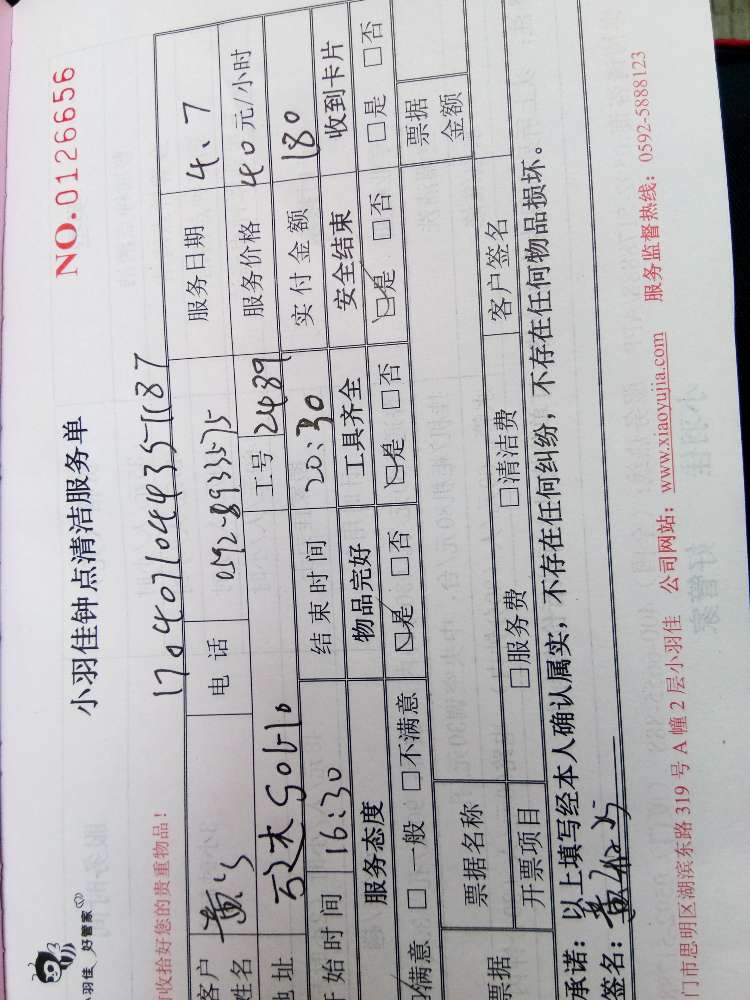 小羽佳 好管家
小羽佳钟点清洁服务单
NO.0126656
收拾好您的贵重物品!
客户姓名 电话 0592-8933575 服务日期 4、7
地址 工号 2489 服务价格 40元/小时
开始时间 16:30 结束时间 20:30 实付金额 180
服务态度 物品完好 工具齐全 安全结束 收到卡片
满意 □一般 □不满意 ☑是 □否 ☑是 □否 ☑是 □否 □是 □否
票据 票据名称 票据金额
开票项目 □服务费 □清洁费 客户签名
承诺:以上填写经本人确认属实,不存在任何纠纷,不存在任何物品损坏。
签名:
门市思明区湖滨东路 319 号 A 幢 2 层小羽佳 公司网站:www.xiaoyujia.com 服务监督热线:0592-5888123